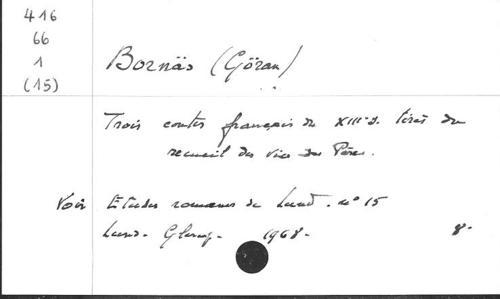 416
66
1
(15)
Bornäs (Göran)
Trois contes français du XIIIe s. tirés du
recueil des vies des Pères.
Voir Etudes romanes de Lund. no 15
Lund. Gleerup. 1968. 8.